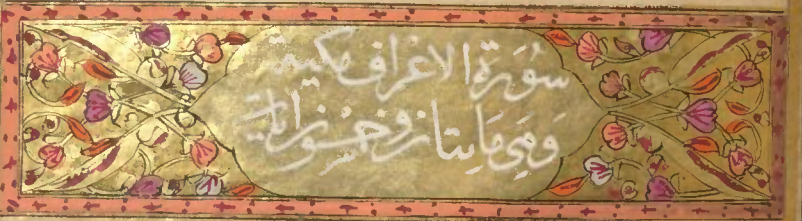 سُورَةُ الاعراف مكية
وَهِيَ مَايتان وخمس ايات